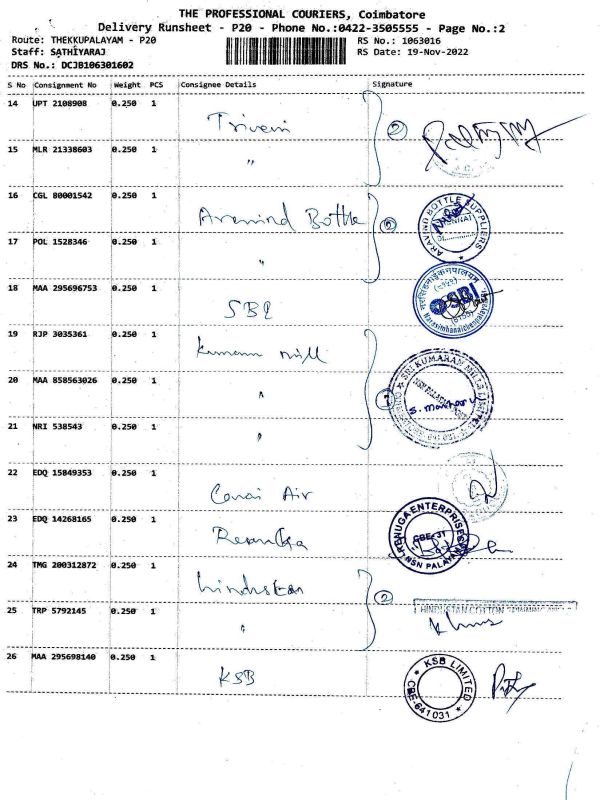 THE PROFESSIONAL COURIERS, Coimbatore
Delivery Runsheet - P20 - Phone No.:0422-3505555 - Page No.:2
Route: THEKKUPALAYAM - P20 RS No.: 1063016
Staff: SATHIYARAJ RS Date: 19-Nov-2022
DRS No.: DCJB106301602
S No Consignment No Weight PCS Consignee Details Signature
14 UPT 2108908 0.250 1 Triveni 2
15 MLR 21338603 0.250 1 "
16 CGL 80001542 0.250 1 Aravind Bottle 2
ARAVIND BOTTLE SUPPLIERS
17 POL 1528346 0.250 1 "
18 MAA 295696753 0.250 1 SBI
SBI
Narasimhanaickenpalayam
19 RJP 3035361 0.250 1 Kumaran mill
SRI KUMARAN MILLS LIMITED
20 MAA 858563026 0.250 1 "
21 NRI 538543 0.250 1 "
22 EDQ 15849353 0.250 1 Air
23 EDQ 14268165 0.250 1 Renuka
RENUGA ENTERPRISES
CBE-31
NSN PALAYAM
24 TMG 200312872 0.250 1 hindustan 2
25 TRP 5792145 0.250 1 "
HINDUSTAN COTTON SPINNING
26 MAA 295698140 0.250 1 KSB
KSB LIMITED
CBE-641031